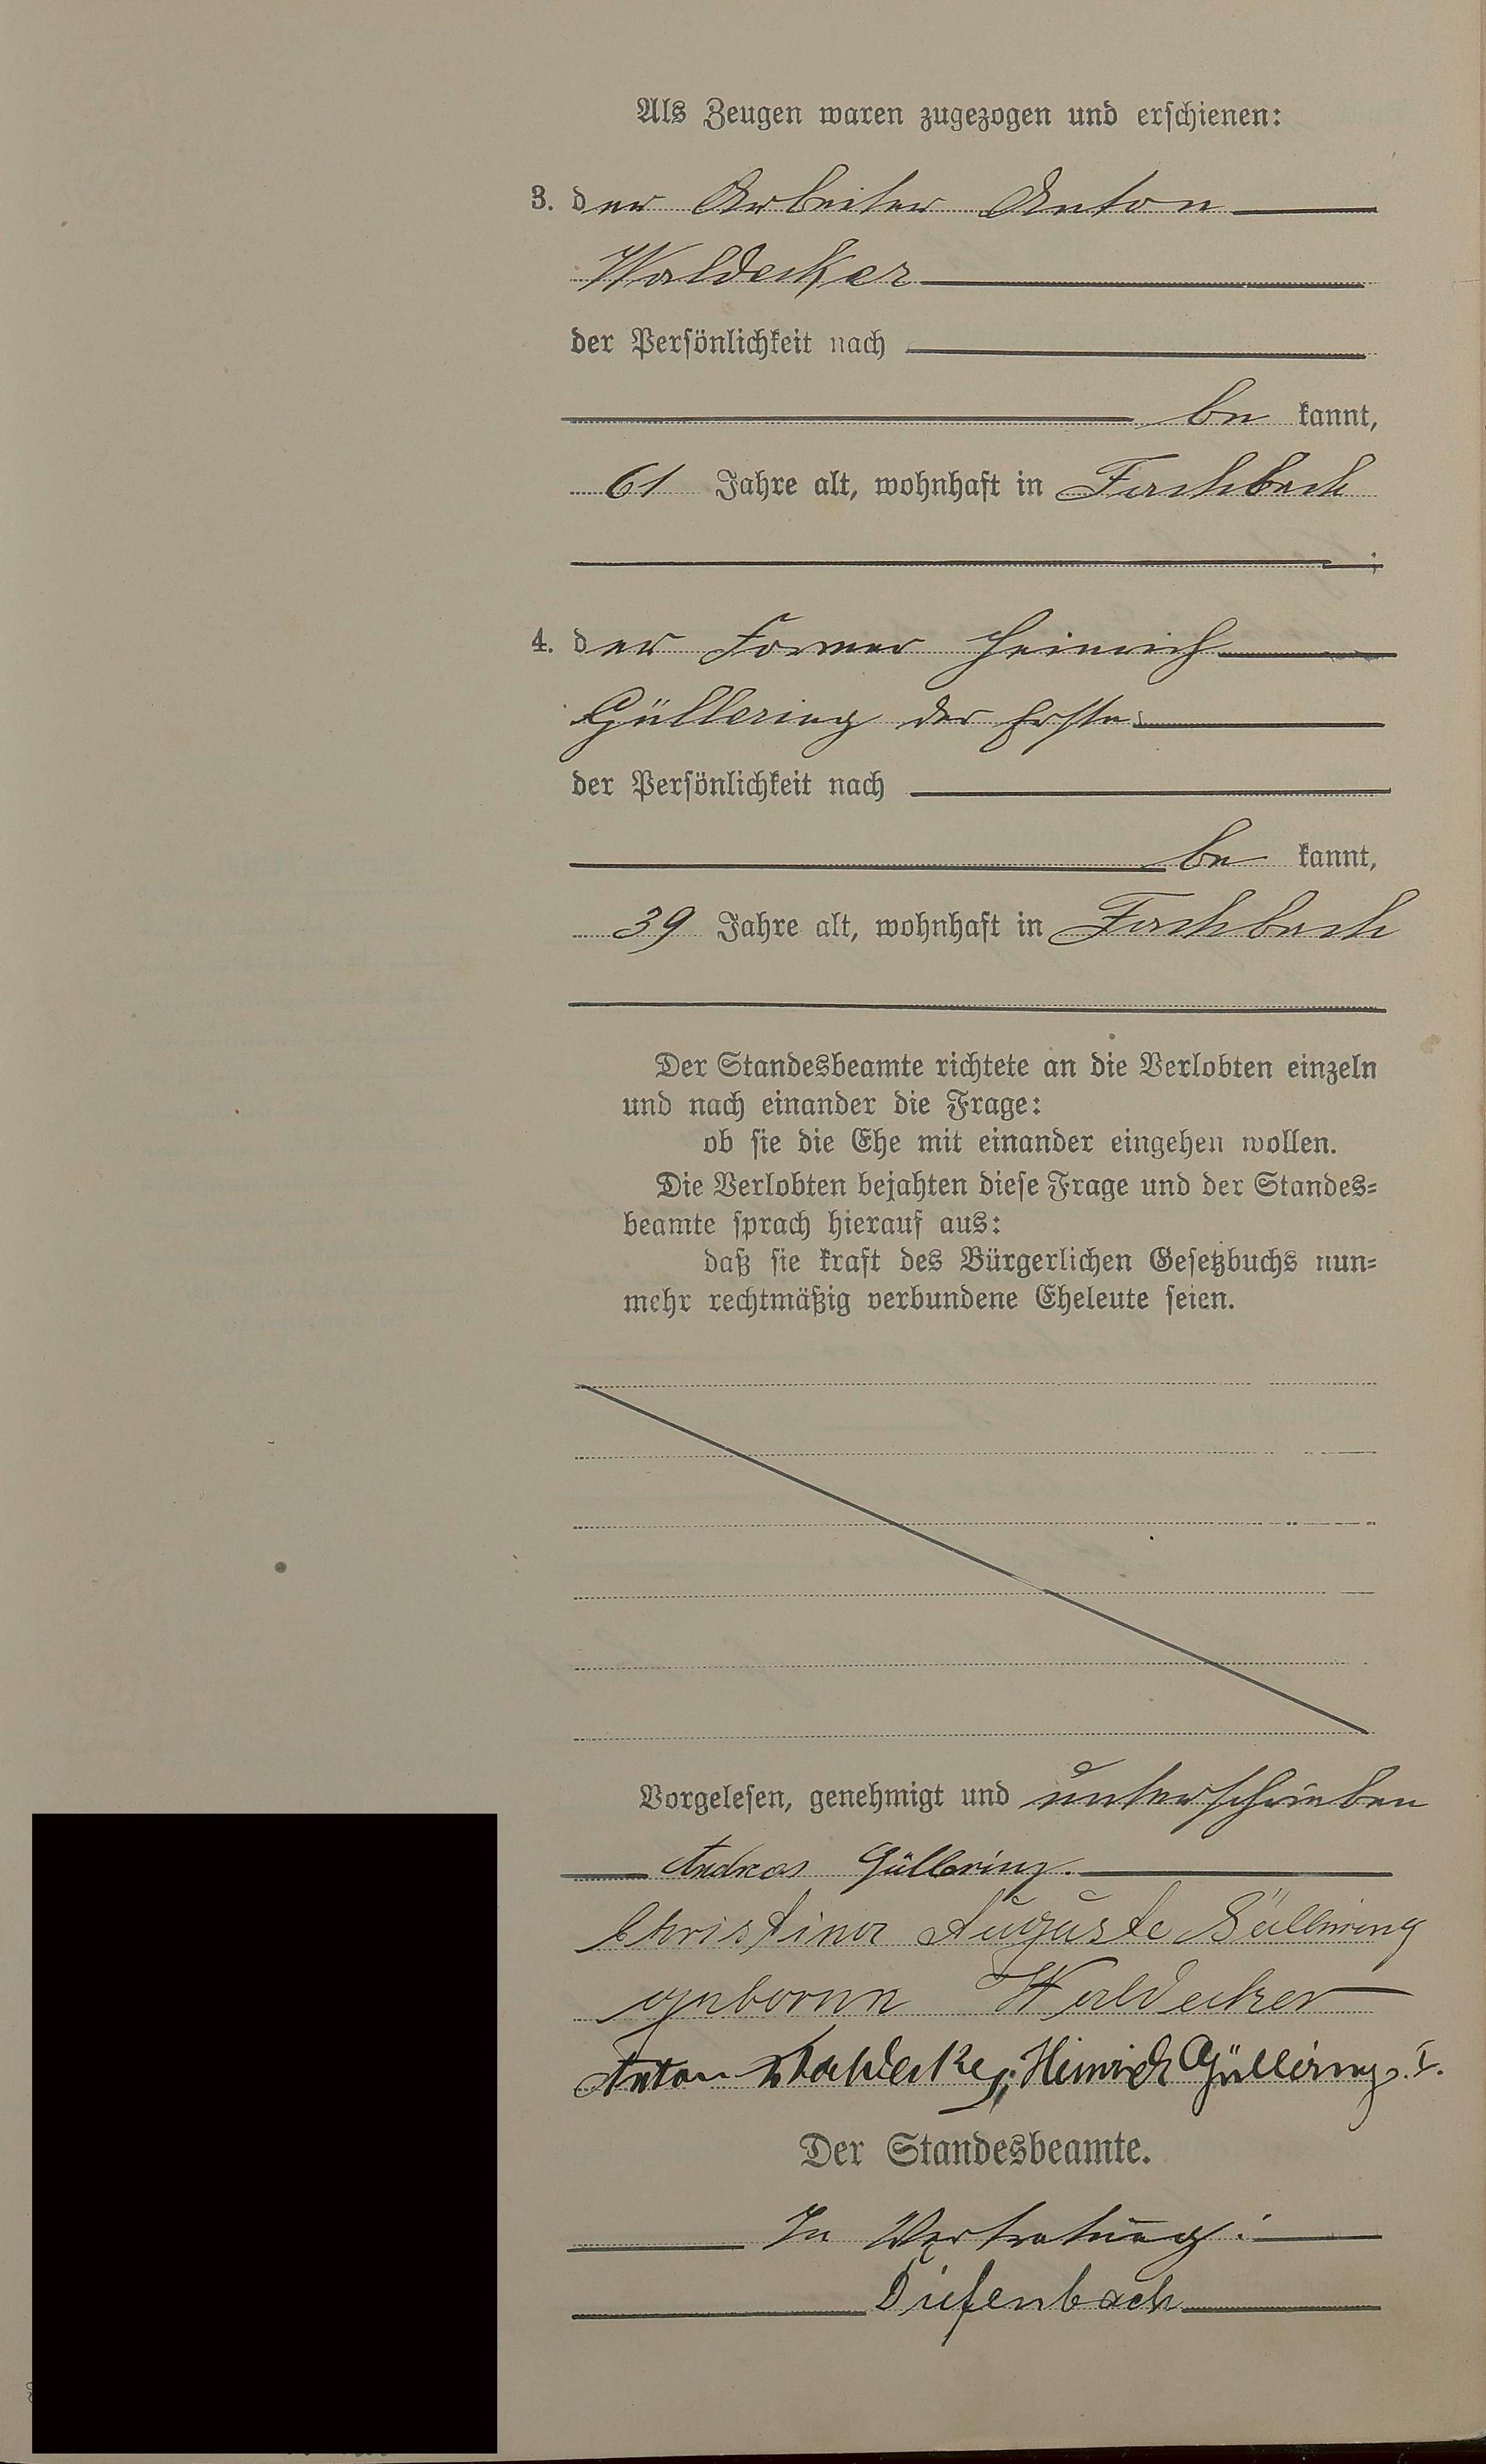 Als Zeugen waren zugezogen und erschienen:
3. der Arbeiter Anton
Waldecker
der Persönlichkeit nach
be kannt,
61 Jahre alt, wohnhaft in
;
4. der Former Heinrich
Güllering der Erste
der Persönlichkeit nach
be kannt,
39 Jahre alt, wohnhaft in
Der Standesbeamte richtete an die Verlobten einzeln
und nach einander die Frage:
ob sie die Ehe mit einander eingehen wollen.
Die Verlobten bejahten diese Frage und der Standes=
beamte sprach hierauf aus:
daß sie kraft des Bürgerlichen Gesetzbuchs nun=
mehr rechtmäßig verbundene Eheleute seien.
Vorgelesen, genehmigt und unterschrieben
Andreas Güllering.
Christina Auguste Güllering
geborene Waldecker
Anton Waldecker, Heinrich Güllering. I.
Der Standesbeamte.
In Vertretung:
Diefenbach